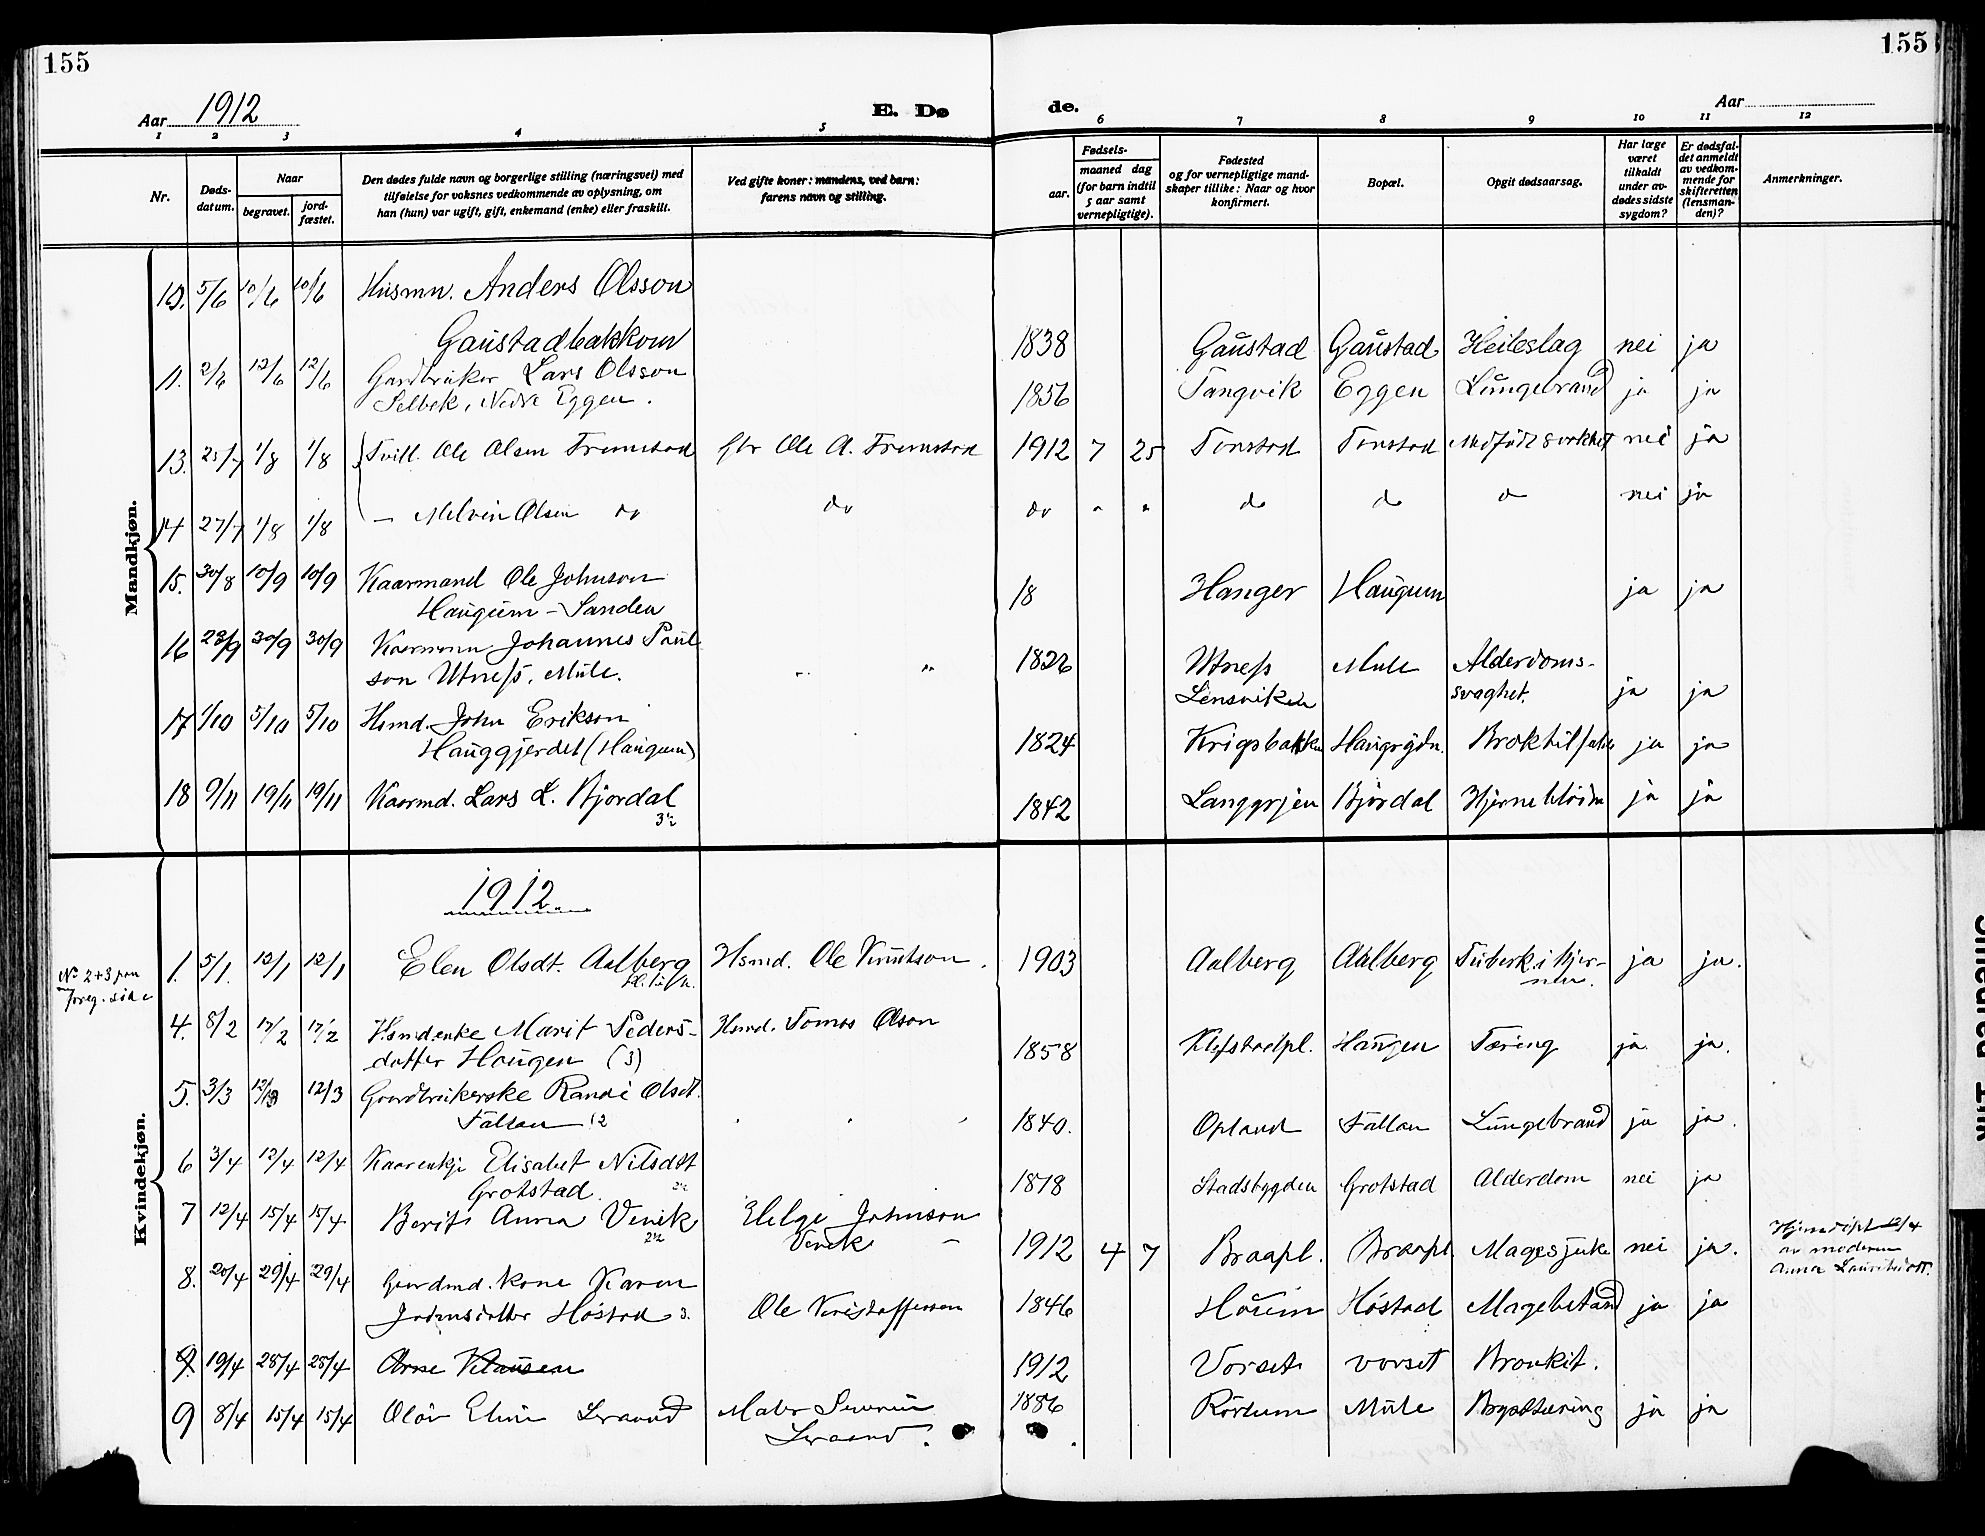 155
155
Aar 1912
E. Dø
de.
Aar
1 2 3 4 5 6 7 8 9 10 11 12
Nr.
Døds-
datum.
Naar
begravet.
jord-
fæstet.
Den dødes fulde navn og borgerlige stilling (næringsvei) med
tilføielse for voksnes vedkommende av oplysning, om
han (hun) var ugift, gift, enkemand (enke) eller fraskilt.
Ved gifte koner: mandens, ved barn:
farens navn og stilling.
Fødsels-
aar.
maaned dag
(for barn indtil
5 aar samt
vernepligtige).
Fødested
og for vernepligtige mand-
skaper tillike: Naar og hvor
konfirmert.
Bopæl.
Opgit dødsaarsag.
Har læge
været
tilkaldt
under av-
dødes sidste
sygdom?
Er dødsfal-
det anmeldt
av vedkom-
mende for
skifteretten
(lensman-
den)?
Anmerkninger.
Mandkjøn.
5/6 10/6 10/6 Husmn. Anders Olsson
Gaustadbakken 1838 Gaustad Gaustad Heileslag nei ja
11. 2/6 12/6 12/6 Gardbruker Lars Olsson
Selbek, Nedre Eggen. 1856 Tangvik Eggen Lungebrand ja ja
13. 25/7 1/8 1/8 Tvill. Ole Olsen Fremstad Ole A. Fremstad 1912 7 25 Tonstad Tonstad nei ja
14 27/7 1/8 1/8 — Melvin Olsen do do do " " do do do nei ja
15. 30/8 10/9 10/9 Kaarmand Ole Johnson
Haugum - Sanden 18 Hanger Haugum ja ja
16 23/9 30/9 30/9 Kaarmann Johannes Paul
son Utness, Mule. 1826 Utness Mule Alderdoms-
Lensviken svaghet. ja ja
17 1/10 5/10 5/10 Hsmd. John Erikson
Hauggjerdet (Haugum) 1824 Krigsbakken ja ja
18 9/11 19/11 19/11 Kaarmd. Lars L. Bjørdal 1842 Bjørdal ja ja
Kvindekjøn.
1912
No 2+3 paa
foreg. side
1. 5/1. 12/1 12/1 Elen Olsdt. Aalberg Hsmd. Ole Knutson. 1903 Aalberg Aalberg Tuberk. i hjer-
nen. ja ja.
4. 8/2 17/2 17/2 Hsmdenke Marit Peders- Hsmd. Tomas Olson
datter Haugen (3) 1858 Klefstadpl. Haugen Tæring ja ja.
5. 3/3 12/3 12/3 Gaardbrukerske Randi Olsdt.
Fallan 12 1840. Opland Fallan Lungebrand ja ja.
6 3/4 12/4 12/4 Kaarenkje Elisabet Nilsdtt
Grotstad. 1818 Stadsbygden Grotstad Alderdom nei ja
7 12/4 15/4 15/4 Berit Anna Venik Helge Johnson
Venik 1912 4 7 Braapl. Braapl. Magesjuke nei ja.
Hjemdøpt 12/4
av moderen
Anna
8. 20/4 29/4 29/4 Gaardmd. kone Karen
Johnsdatter Høstad 3. Ole Kristoffersen 1846 Høstad ja ja
9. 19/4 25/4 25/4 Arne Klausen 1912 Vorset vorset Bronkit.
9 8/4 15/4 15/4 Leraand
Leraand. 1886 Rørtum Mule Brysttæring ja ja